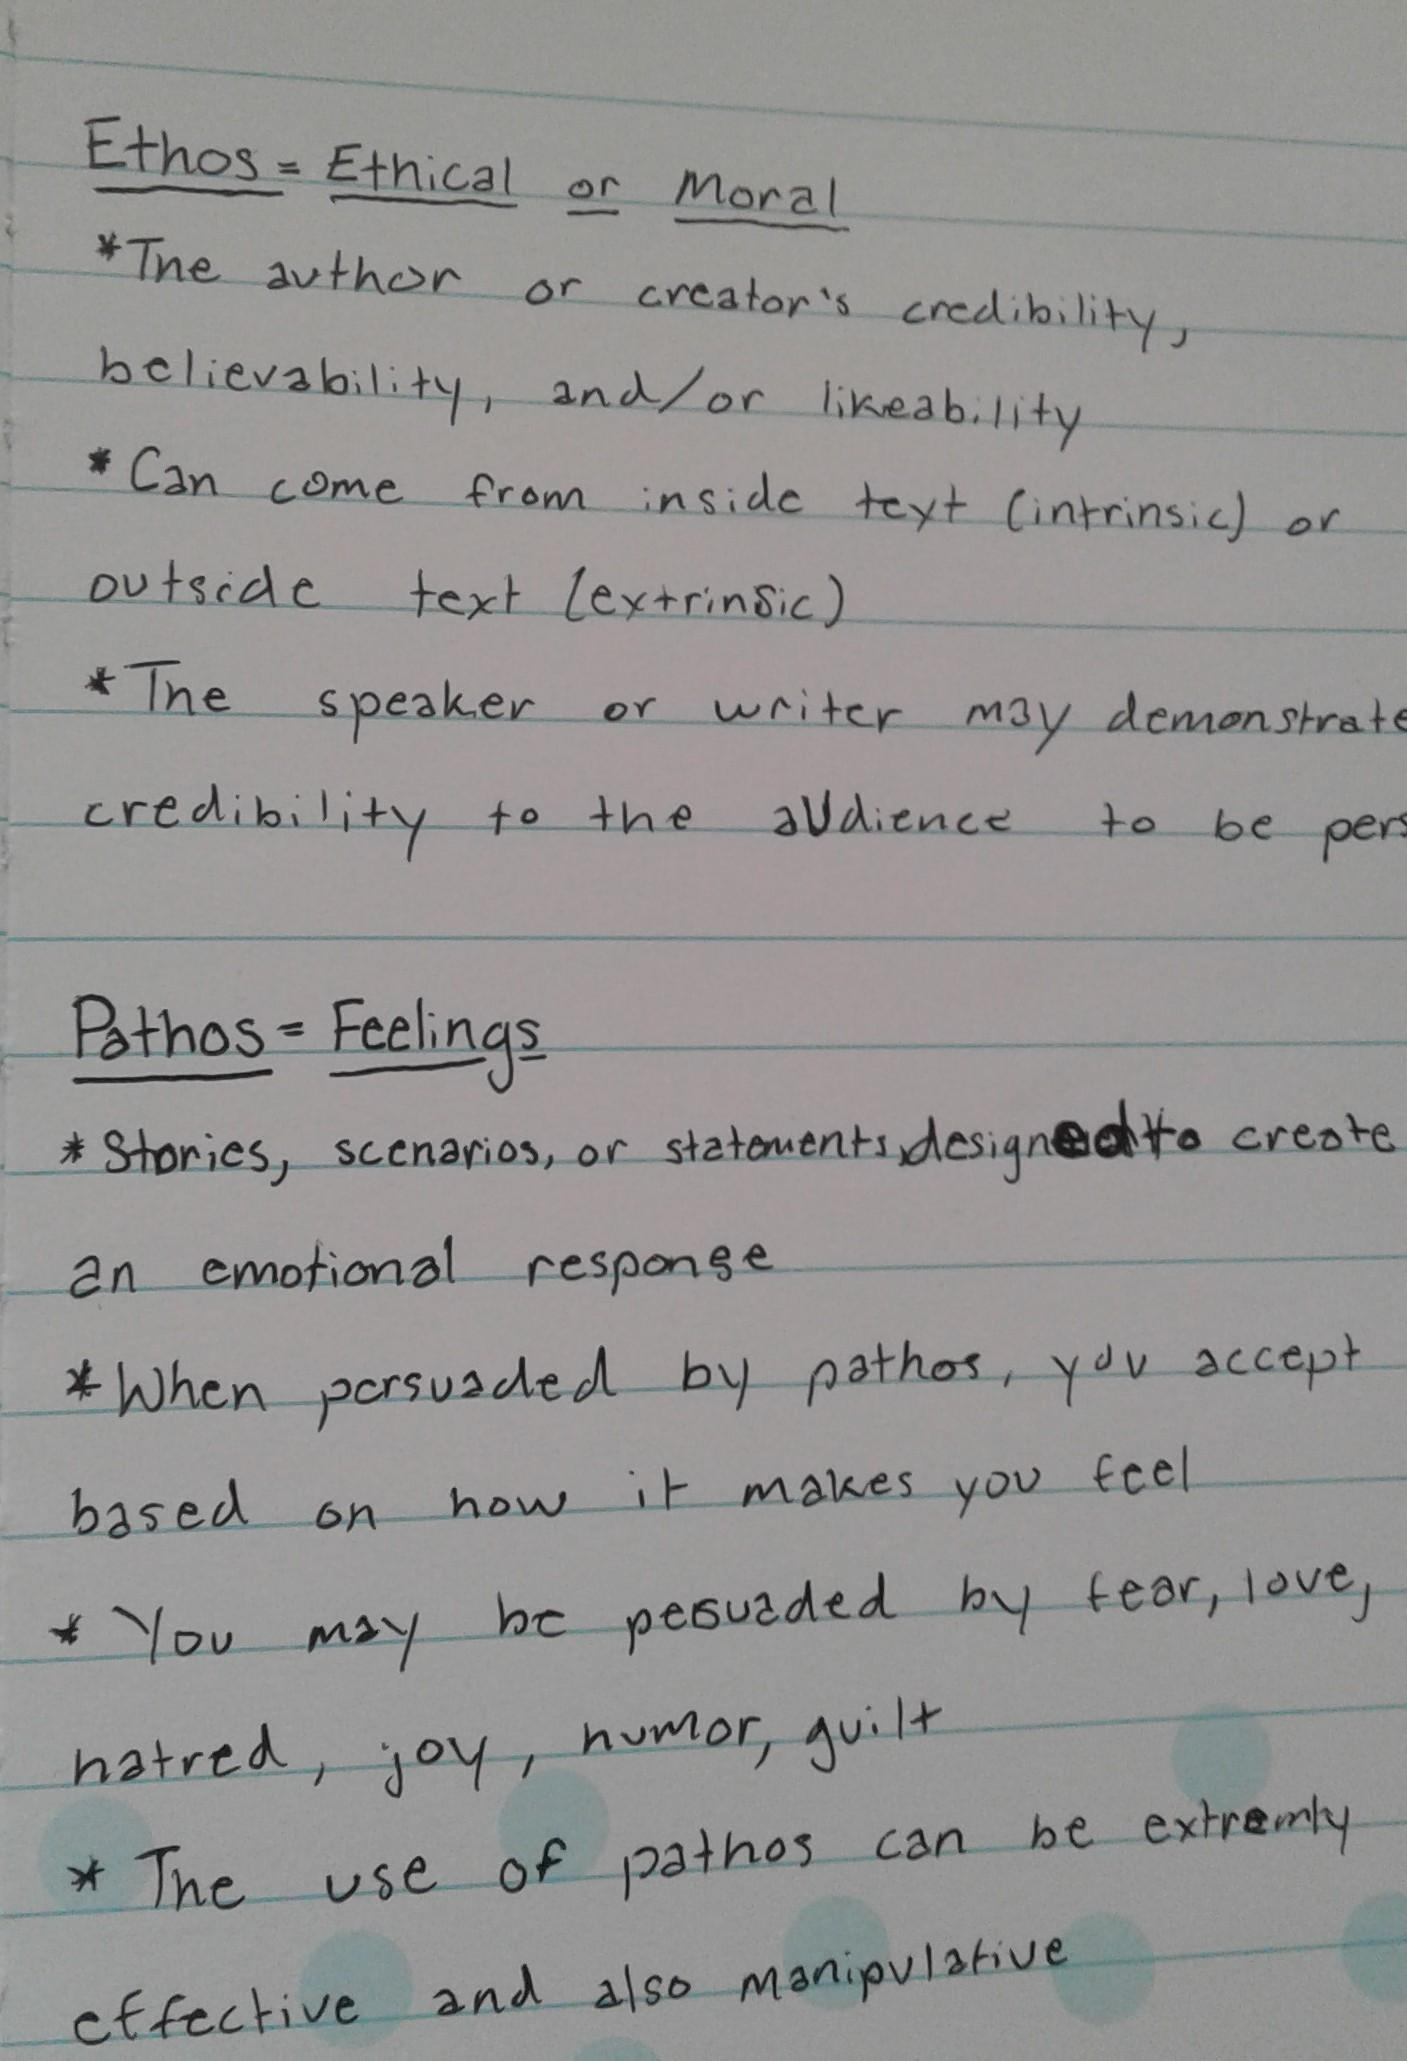 Ethos = Ethical or Moral
* The author or creator's credibility,
believability, and/or likeability
* Can come from inside text (intrinsic) or
outside text (extrinsic)
* The speaker or writer may demonstrate
credibility to the audience to be pers
Pathos = Feelings
* Stories, scenarios, or statements designed to create
an emotional response
* When persuaded by pathos, you accept
based on how it makes you feel
* You may be pesuaded by fear, love,
hatred, joy, humor, guilt
* The use of pathos can be extremly
effective and also manipulative